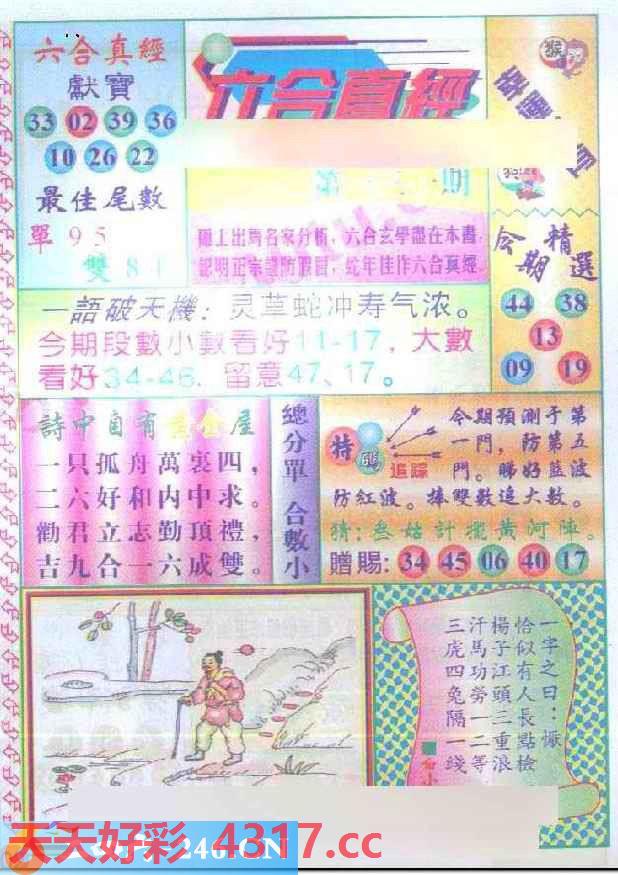 六合真經
獻寶
33 02 39 36
10 26 22
最佳尾數
單 9 5
雙 8
六合真經
猴
第
期
六合玄學盡在本書
蛇年佳作六合真經
今期精選
44 38
13
09 19
一語破天機：灵草蛇冲寿气浓。
今期段數小數看好11-17，大數
看好34-46．留意47、17。
詩中自有黃金屋
一只孤舟萬裏四，
二六好和内中求。
勸君立志勤頂禮，
吉九合一六成雙。
總分單 合數小
特碼
追踪
今期預測于第
一門，防第五
門。睇好藍波
防紅波。捧雙數追大數。
猜：叁姑計擺黃河陣。
贈賜：34 45 06 40 17
一字之曰：懨
恰似有人長點檢
楊子江頭三重浪
汗馬功勞一二等
三虎四兔隔一綫
天天好彩 4317.cc